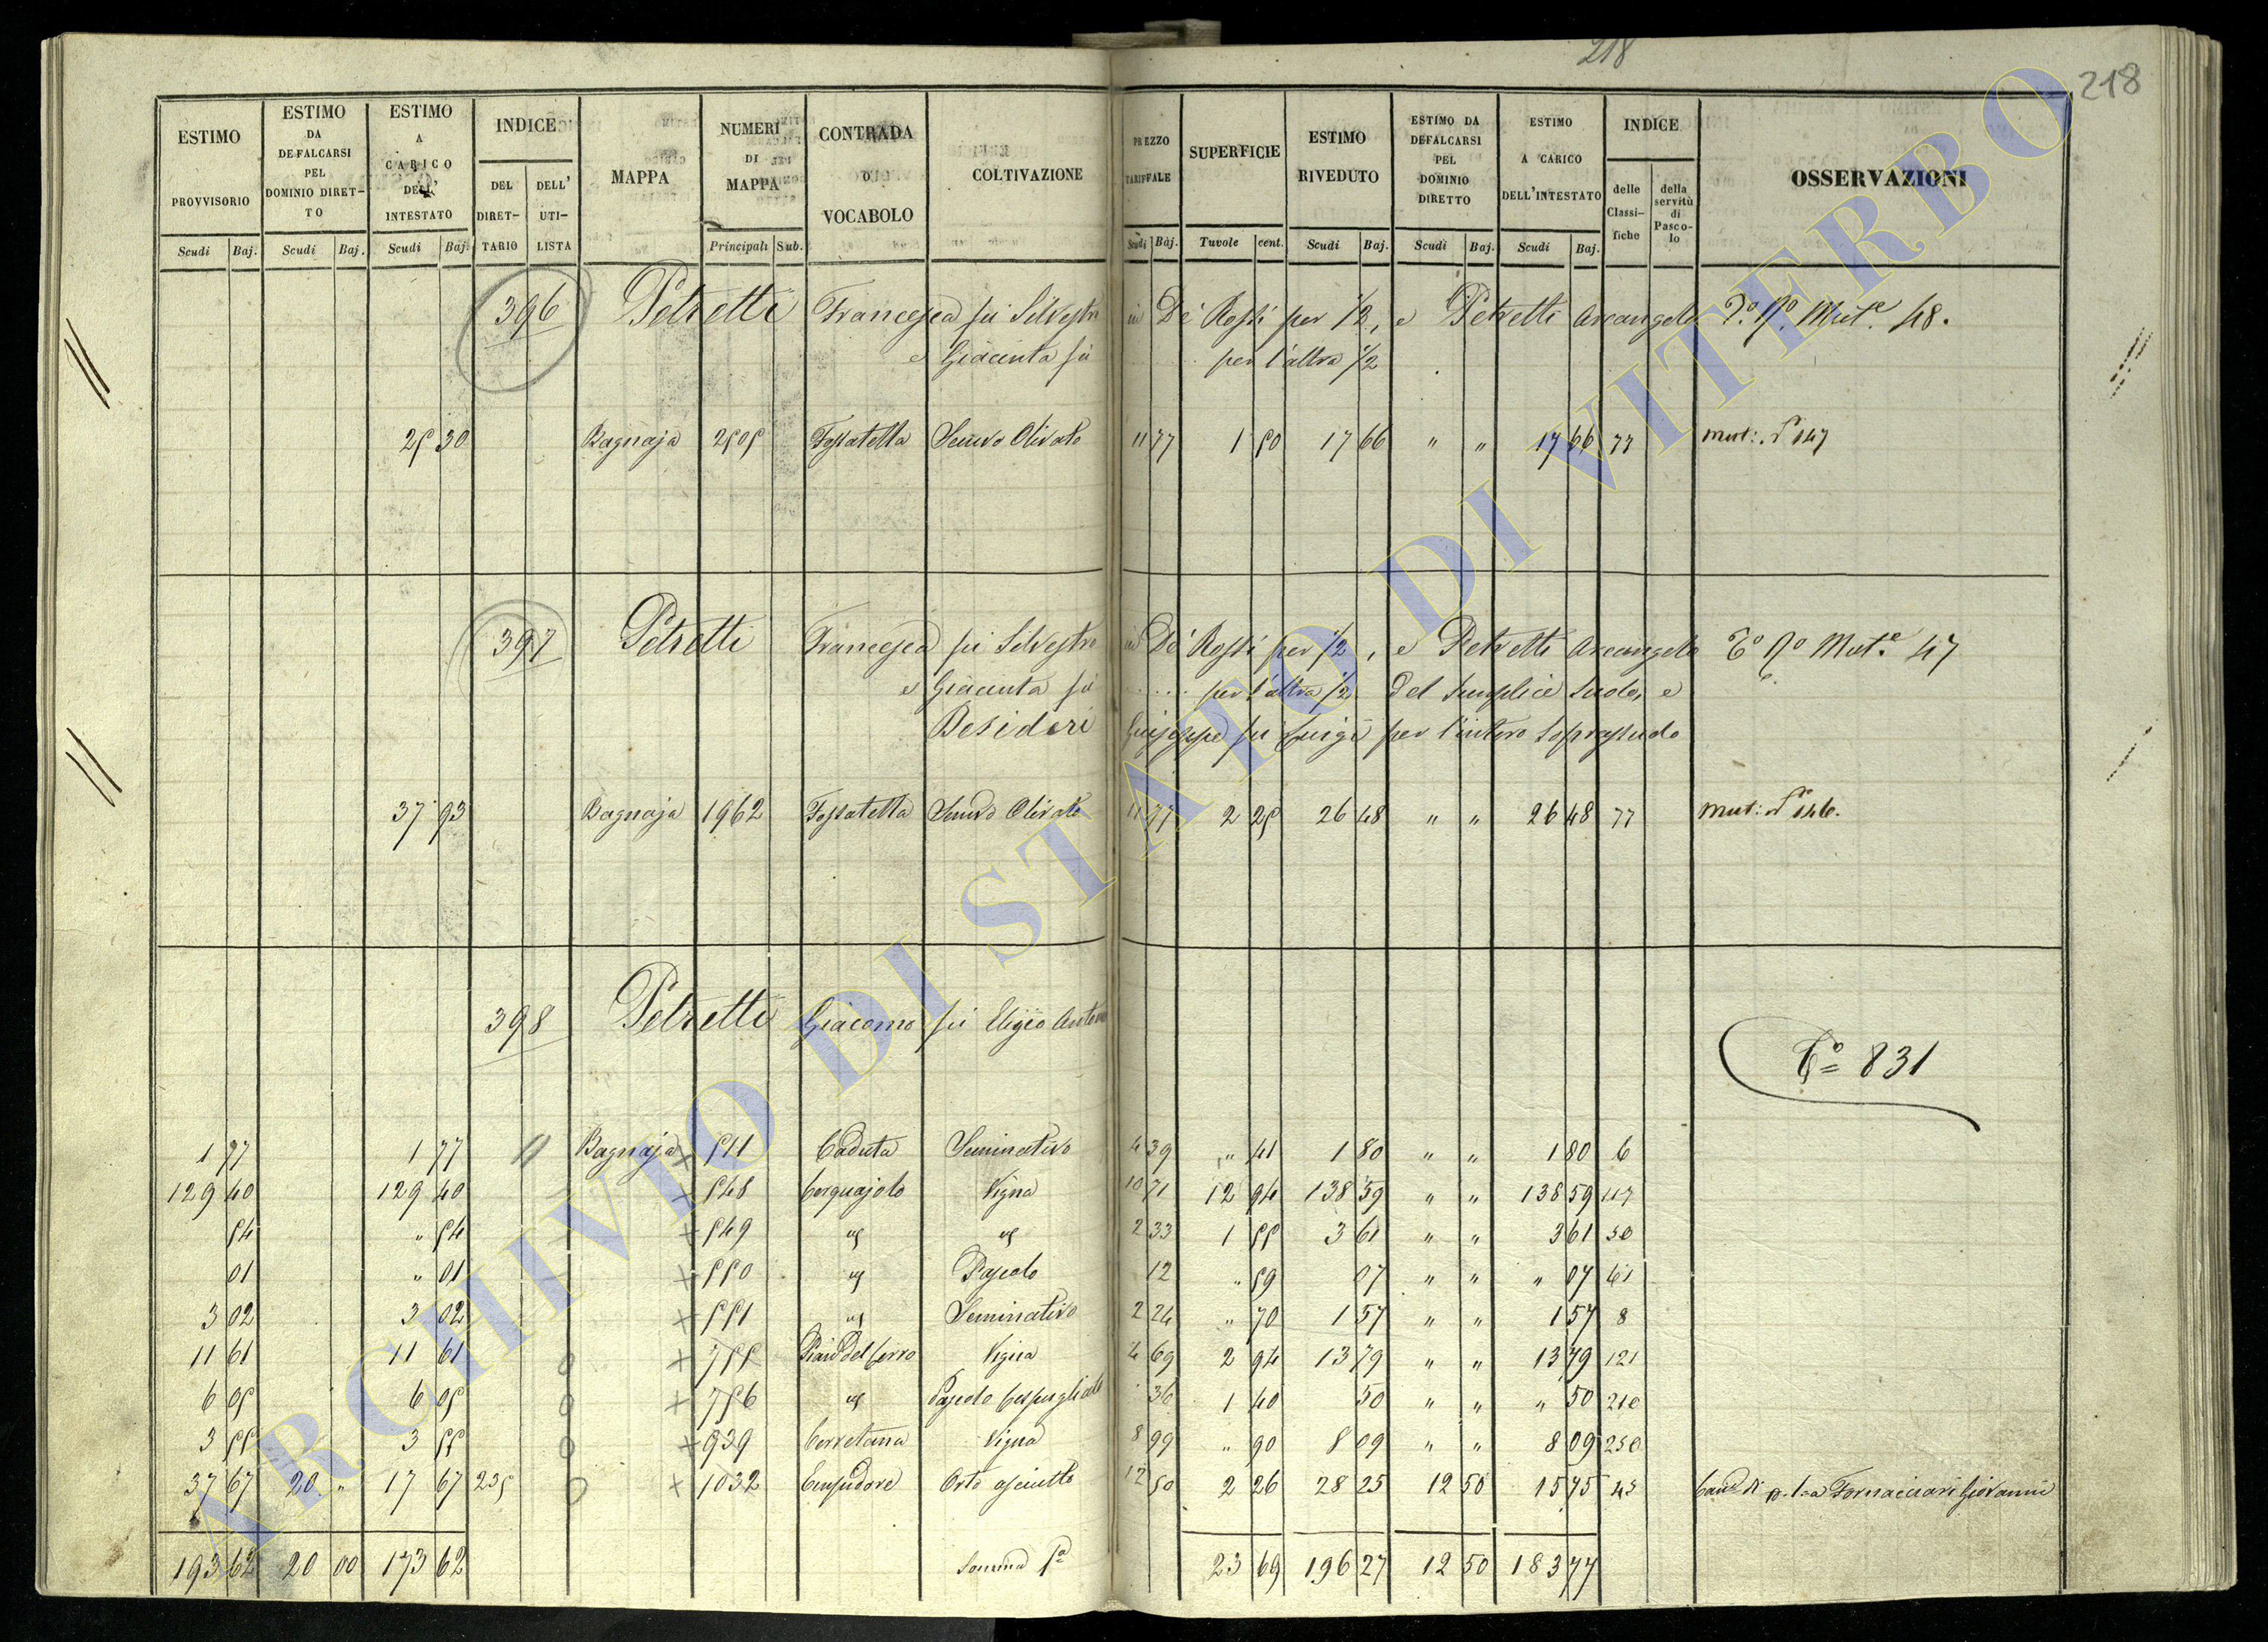 218
218
ESTIMO PROVVISORIO Scudi Baj.
ESTIMO DA DEFALCARSI PEL DOMINIO DIRET-TO Scudi Baj.
ESTIMO A CARICO DELL' INTESTATO Scudi Baj.
INDICE DEL DIRET-TARIO DELL' UTI-LISTA
MAPPA
NUMERI DI MAPPA Principali Sub.
CONTRADA O VOCABOLO
COLTIVAZIONE
PREZZO TARIFFALE Scudi Baj.
SUPERFICIE Tavole cent.
ESTIMO RIVEDUTO Scudi Baj.
ESTIMO DA DEFALCARSI PEL DOMINIO DIRETTO Scudi Baj.
ESTIMO A CARICO DELL'INTESTATO Scudi Baj.
INDICE delle Classi-fiche della servitù di Pasco-lo
OSSERVAZIONI
396 Petretti Francesca fu Silvestro in De Rossi per 1/2, e Petretti Arcangelo Tº. Nº. Mutᵉ. 48.
e Giacinta fu ..... per l'altra 1/2
25 30 Bagnaja 2505 Fossatella Semvo Olivato 11 77 1 50 17 66 " " 17 66 77 Mut: Nº 147
397 Petretti Francesca fu Silvestro in De Rossi per 1/2, e Petretti Arcangelo Tº Nº Mutᵉ. 47
e Giacinta fu ..... per l'altra 1/2 del semplice suolo, e
Desideri Giuseppe fu Luigi per l'intero soprasuolo
37 93 Bagnaja 1962 Fossatella Semvo Olivato 11 77 2 25 26 48 " " 26 48 77 Mut: Nº 146.
398 Petretti Giacomo fu Eligio Antonio
Cº= 831
1 77 1 77 Bagnaja x 511 Caduta Seminativo 4 39 " 41 1 80 " " 1 80 6
129 40 129 40 x 548 Cerquajolo Vigna 10 71 12 94 138 59 " " 138 59 117
54 " 54 x 549 " " 2 33 1 55 3 61 " " 3 61 50
01 " 01 x 550 " Pascolo 12 " 59 07 " " " 07 61
3 02 3 02 x 551 " Seminativo 2 24 " 70 1 57 " " 1 57 8
11 61 11 61 x 755 Piano del Cerro Vigna 4 69 2 94 13 79 " " 13 79 121
6 05 6 05 x 756 " Pascolo Cespugliato 36 1 40 50 " " " 50 210
3 55 3 55 x 939 Cerretana Vigna 8 99 " 90 8 09 " " 8 09 250
37 67 20 " 17 67 235 x 1032 Orto asciutto 12 50 2 26 28 25 12 50 15 75 45 Fornaciari Giovanni
193 62 20 00 173 62 Somma Pª 23 69 196 27 12 50 183 77
ARCHIVIO DI STATO DI VITERBO